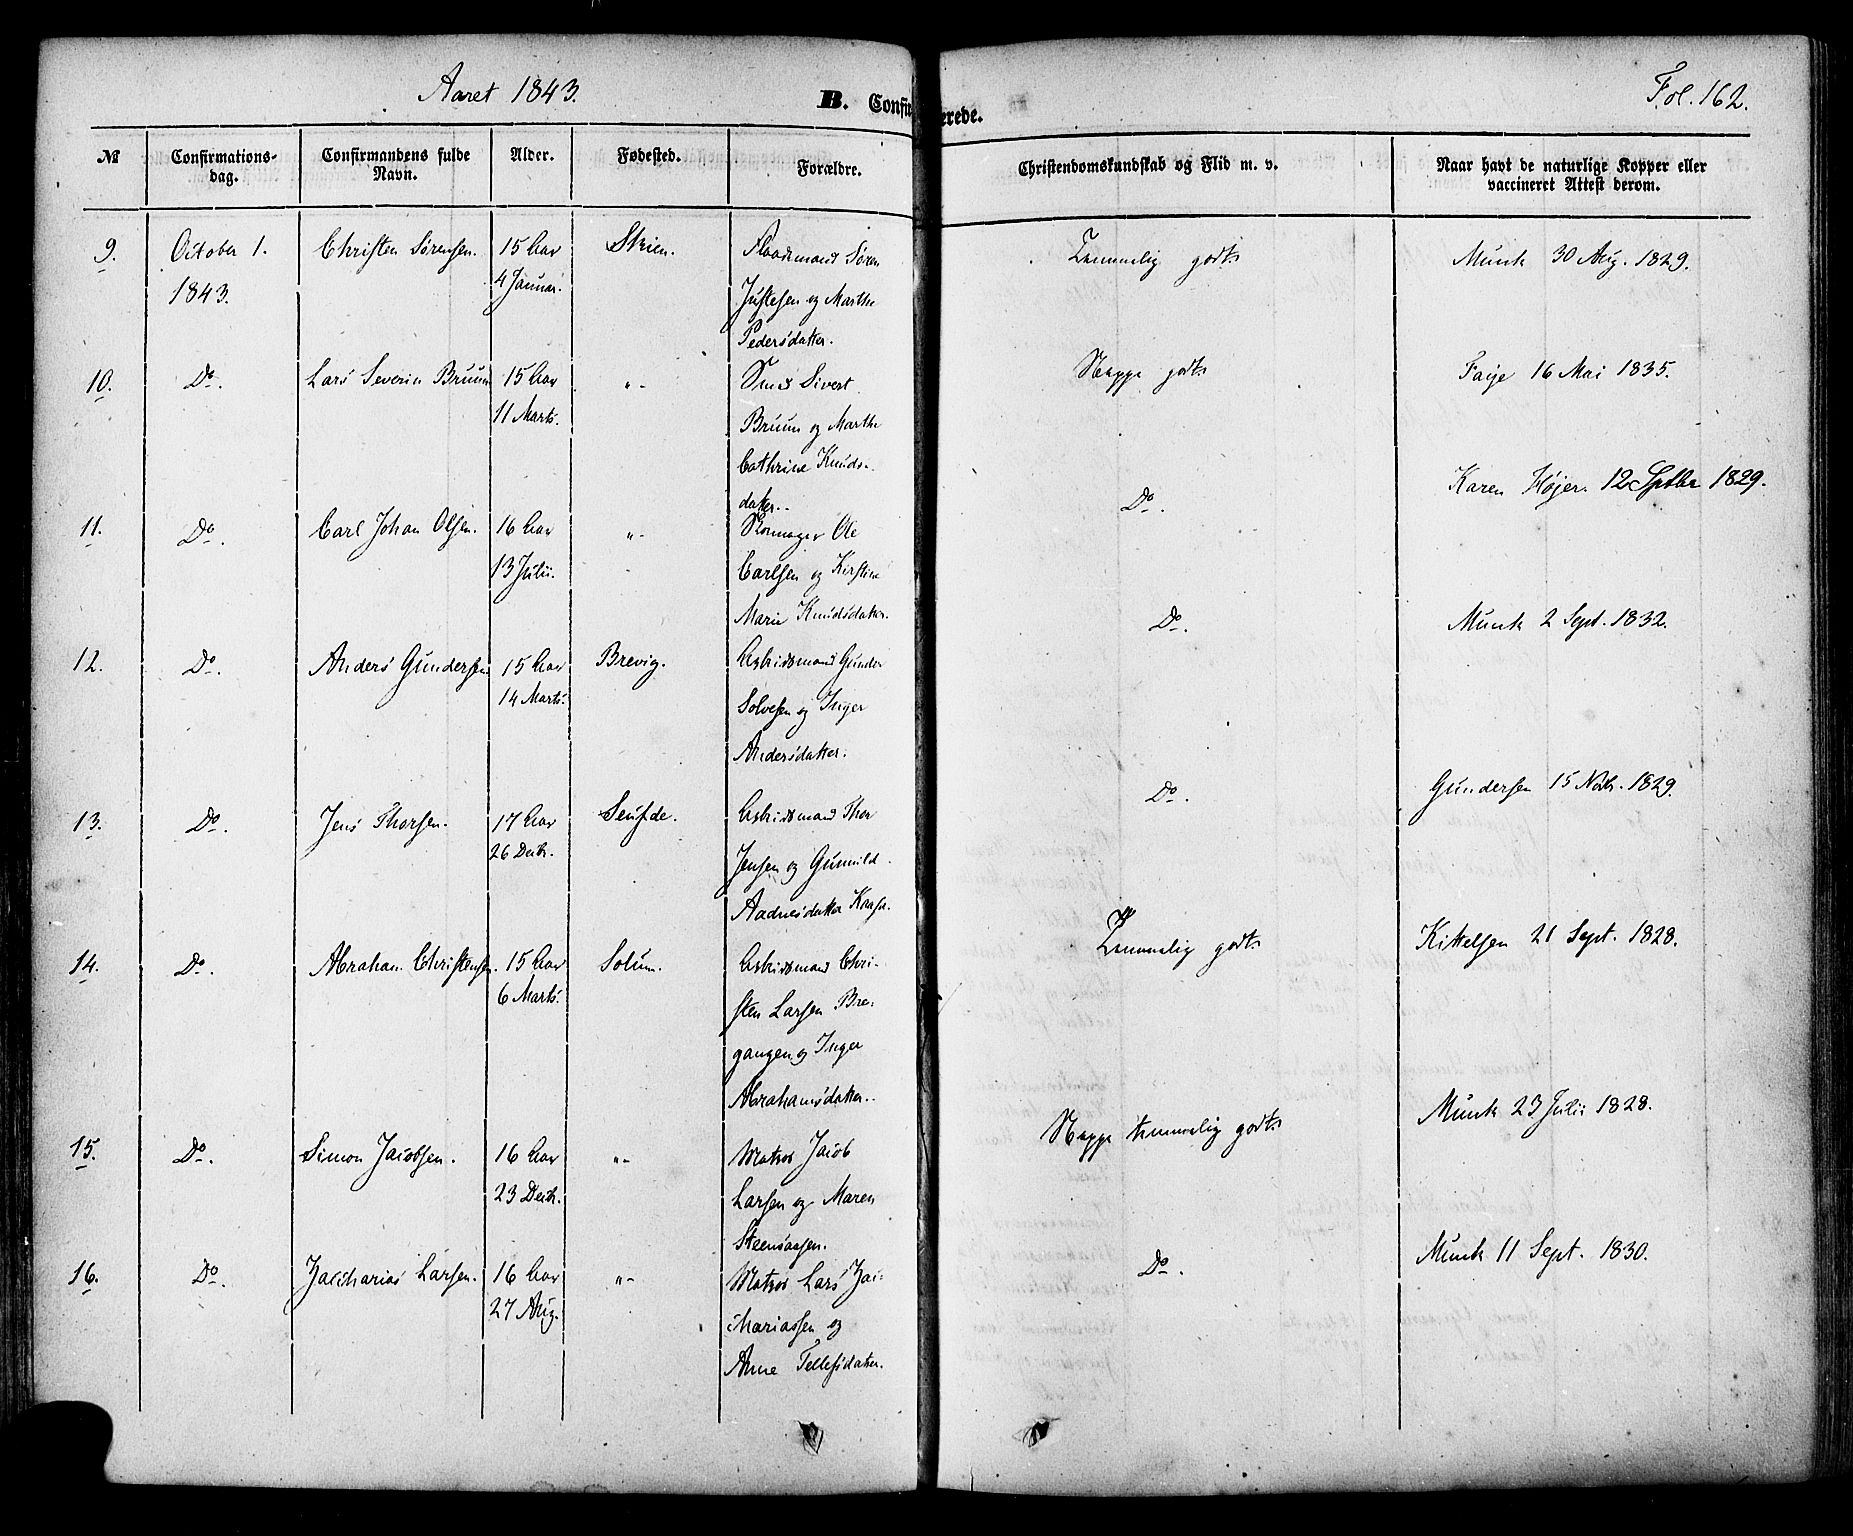 Aaret 1843.
B. Confir
erede.
Fol. 162.
№
Confirmations-
dag.
Confirmandens fulde
Navn.
Alder.
Fødested.
Forældre.
Christendomskundskab og Flid m. v.
Naar havt de naturlige Kopper eller
vaccineret Attest derom.
9. October 1. Christen Sørensen. 15 Aar Skien. Søren Temmelig godt Munk 30 Aug. 1829.
1843. 4 Januar. Justesen og Marthe
Pedersdatter.
10. Do. Lars Severin Bruun 15 Aar „- Smed Sivert Neppe godt Faije 16 Mai 1835.
11 Marts. Bruun og Marthe
Cathrine Knuds-
datter.
11. Do. Carl Johan Olsen. 16 Aar „- Skomager Ole Do. Karen Højer. 12 Septbr 1829.
13 Julii. Carlsen og Kirstine
Marie Knudsdatter.
12. Do. Anders Gundersen 15 Aar Brevig. Arbeidsmand Gunder Do. Munk 2 Sept. 1832.
14 Marts. Solvesen og Inger
Andersdatter.
13. Do. Jens Thorsen. 17 Aar Seufde. Arbeidsmand Thor Do. Gundersen 15 Novbr. 1829.
26 Decbr. Jensen og Gunnild
Aadnesdatter Kaasa.
14. Do. Abraham Christensen. 15 Aar Solum. Arbeidsmand Chri- Temmelig godt Kittelsen 21 Sept. 1828.
6 Marts. sten Larsen Bre-
gangen og Inger
Abrahamsdatter.
15. Do. Simon Jacobsen. 16 Aar „- Matros Jacob Neppe temmelig godt Munk 23 Julii 1828.
23 Decbr. Larsen og Maren
Steensaasen.
16. Do. Zacharias Larsen. 16 Aar „- Matros Lars Zac- Do. Munk 11 Sept. 1830.
27 Aug. hariassen og
Anne Tellefsdatter.